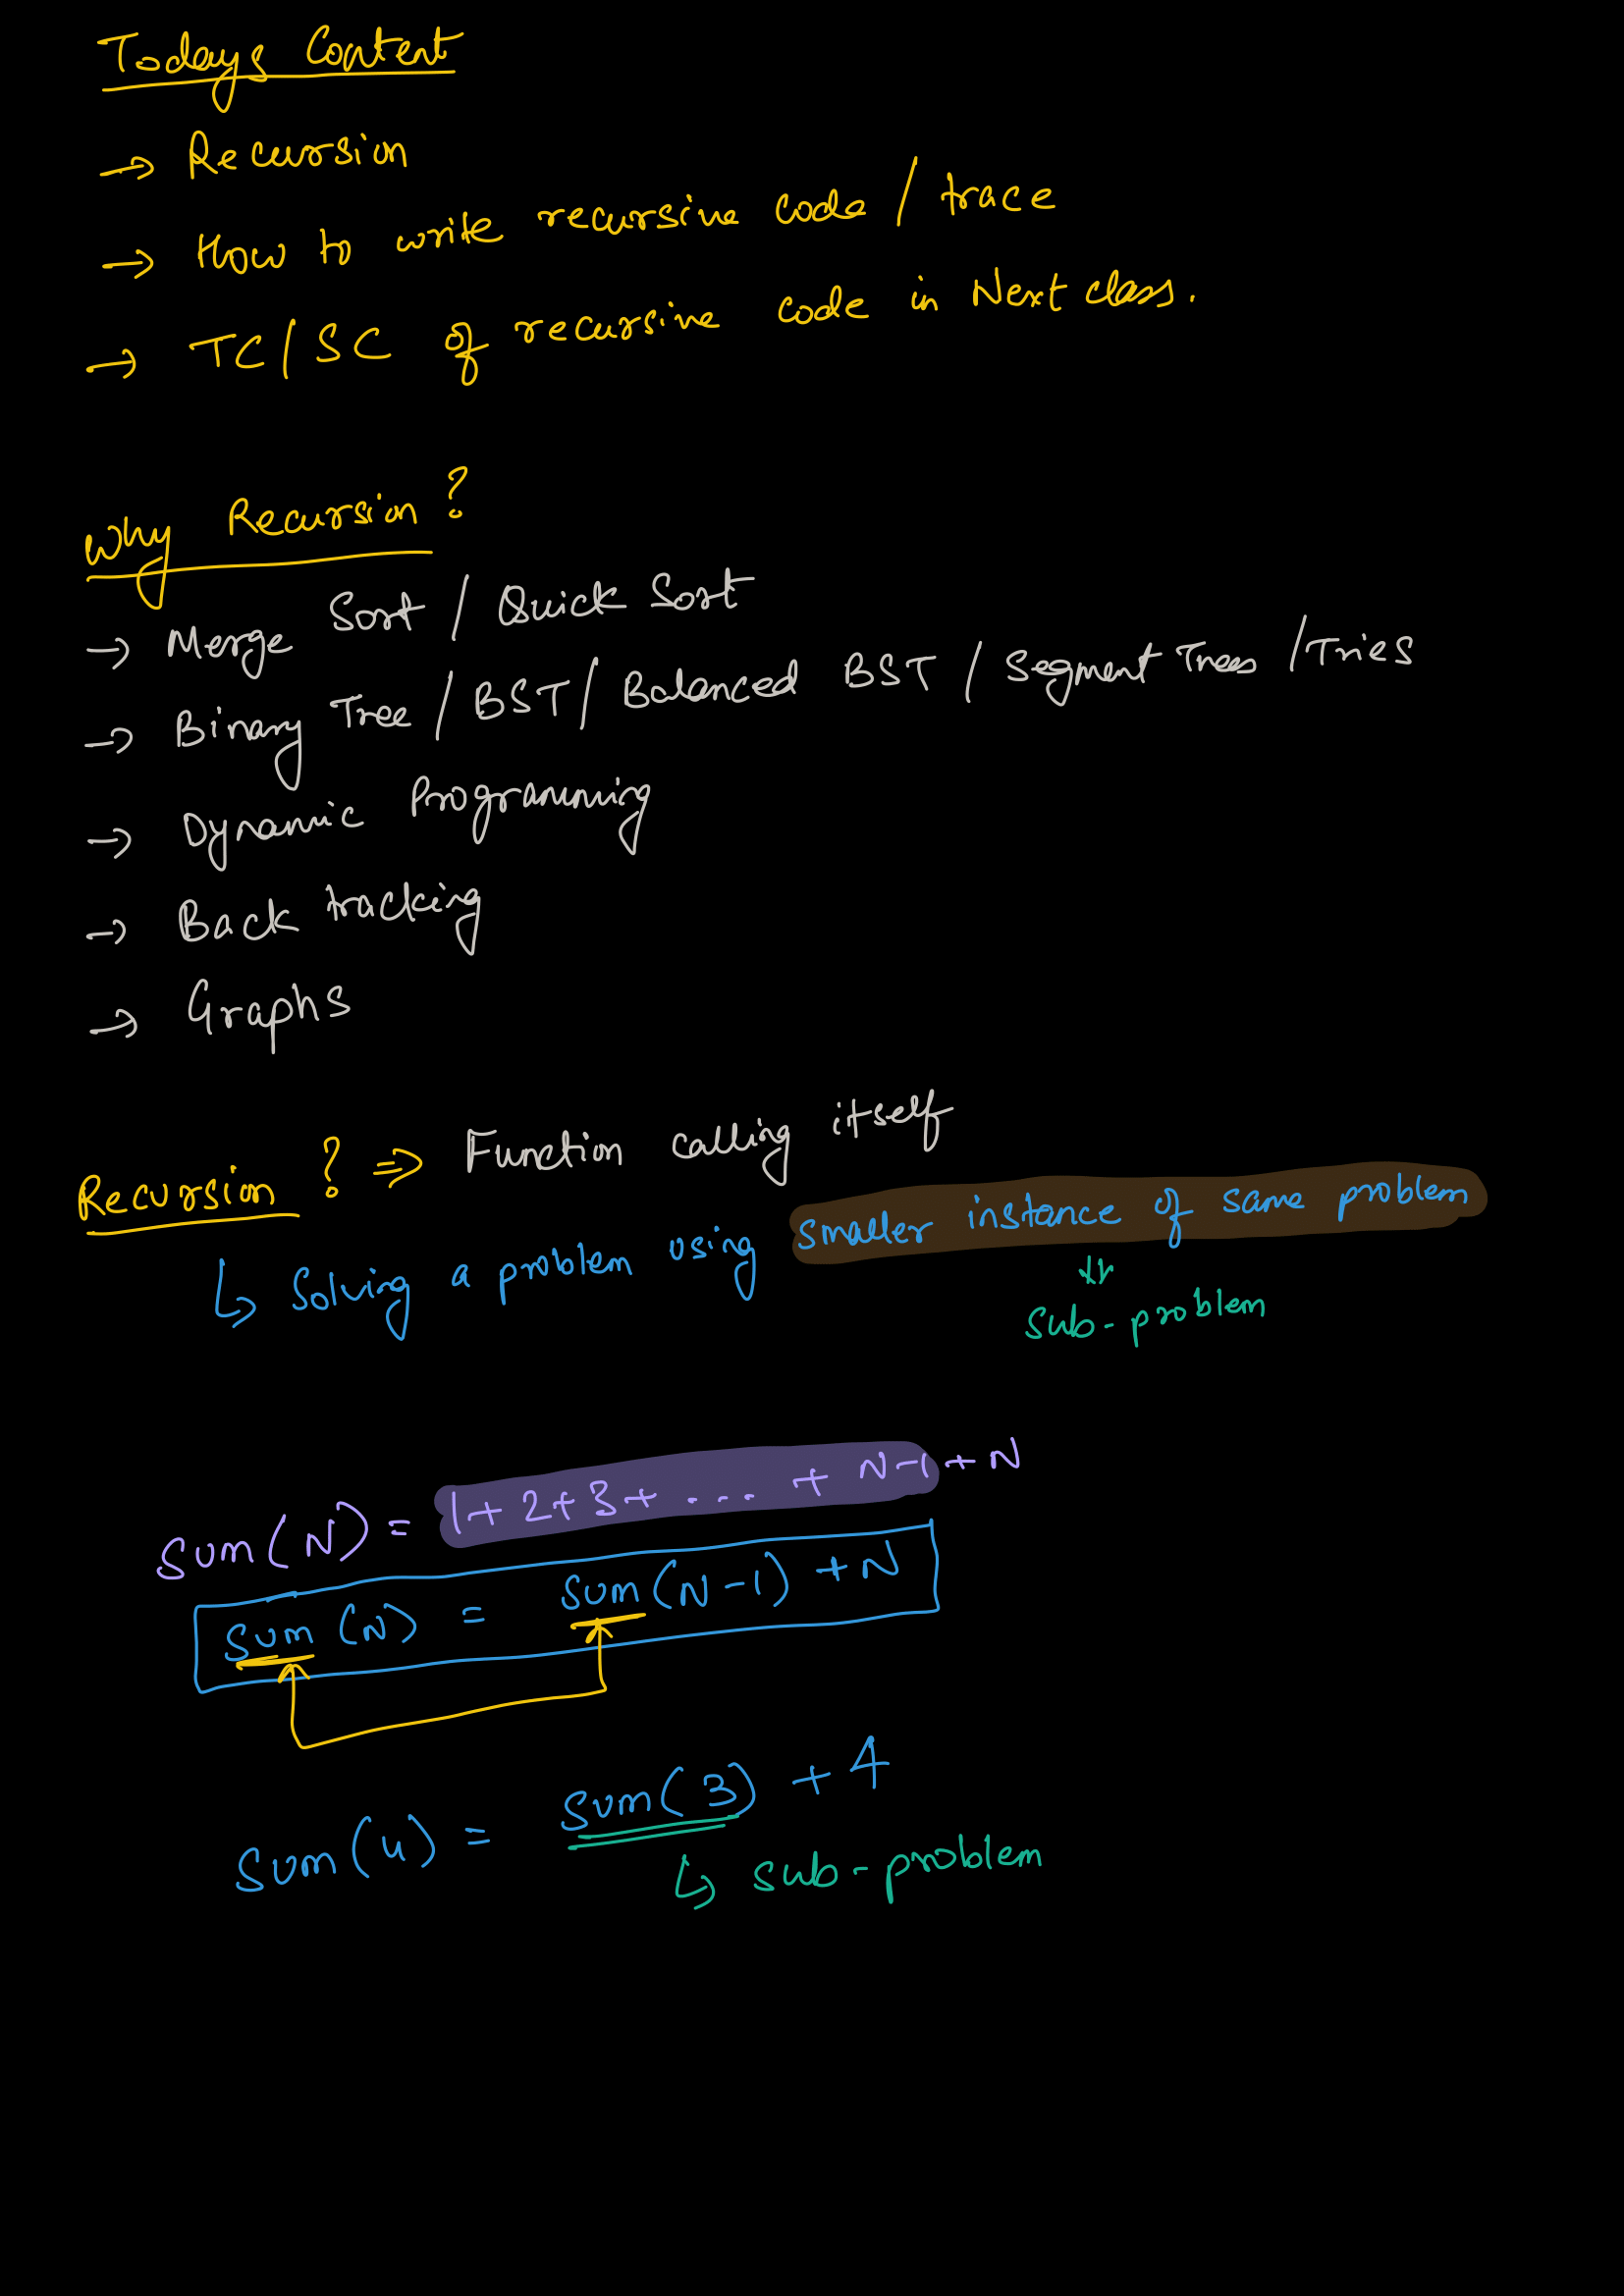 Todays Content
→ Recursion
→ How to write recursive code / trace
→ TC/SC of recursive code in Next class.
Why Recursion?
→ Merge Sort / Quick Sort
→ Binary Tree / BST / Balanced BST / Segment Trees / Tries
→ Dynamic Programming
→ Back tracking
→ Graphs
Recursion? ⇒ Function calling itself
↳ Solving a problem using smaller instance of same problem
sub-problem
Sum(N) = 1+2+3+ ... + N-1 + N
Sum(N) = Sum(N-1) + N
Sum(4) = Sum(3) + 4
↳ sub-problem